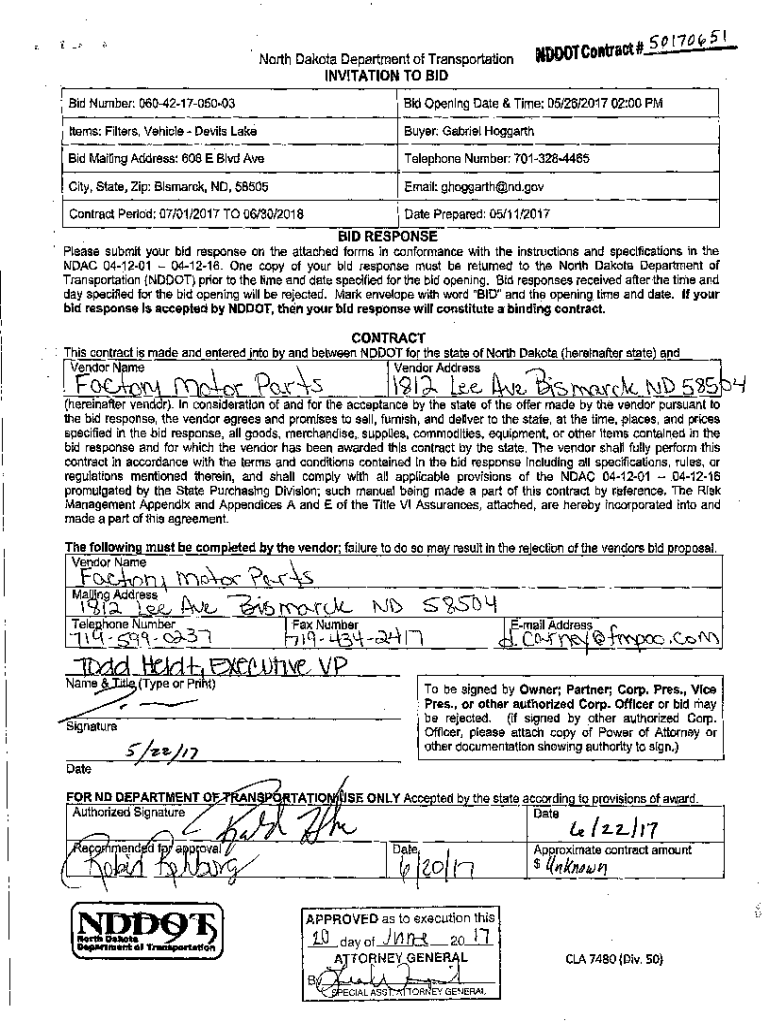 NDDOT Contract # 50170651
North Dakota Department of Transportation
INVITATION TO BID
Bid Number: 060-42-17-050-03 Bid Opening Date & Time: 05/26/2017 02:00 PM
Items: Filters, Vehicle - Devils Lake Buyer: Gabriel Hoggarth
Bid Mailing Address: 608 E Blvd Ave Telephone Number: 701-328-4465
City, State, Zip: Bismarck, ND, 58505 Email: ghoggarth@nd.gov
Contract Period: 07/01/2017 TO 06/30/2018 Date Prepared: 05/11/2017
BID RESPONSE
Please submit your bid response on the attached forms in conformance with the instructions and specifications in the
NDAC 04-12-01 – 04-12-16. One copy of your bid response must be returned to the North Dakota Department of
Transportation (NDDOT) prior to the time and date specified for the bid opening. Bid responses received after the time and
day specified for the bid opening will be rejected. Mark envelope with word "BID" and the opening time and date. If your
bid response is accepted by NDDOT, then your bid response will constitute a binding contract.
CONTRACT
This contract is made and entered into by and between NDDOT for the state of North Dakota (hereinafter state) and
Vendor Name Vendor Address
Factory Motor Parts 1812 Lee Ave Bismarck ND 58504
(hereinafter vendor). In consideration of and for the acceptance by the state of the offer made by the vendor pursuant to
the bid response, the vendor agrees and promises to sell, furnish, and deliver to the state, at the time, places, and prices
specified in the bid response, all goods, merchandise, supplies, commodities, equipment, or other items contained in the
bid response and for which the vendor has been awarded this contract by the state. The vendor shall fully perform this
contract in accordance with the terms and conditions contained in the bid response including all specifications, rules, or
regulations mentioned therein, and shall comply with all applicable provisions of the NDAC 04-12-01 – 04-12-16
promulgated by the State Purchasing Division; such manual being made a part of this contract by reference. The Risk
Management Appendix and Appendices A and E of the Title VI Assurances, attached, are hereby incorporated into and
made a part of this agreement.
The following must be completed by the vendor; failure to do so may result in the rejection of the vendors bid proposal.
Vendor Name
Factory Motor Parts
Mailing Address
1812 Lee Ave Bismarck ND 58504
Telephone Number Fax Number E-mail Address
719-599-0237 719-434-2417 d.carney@fmpco.com
Todd Heldt, Executive VP
Name & Title (Type or Print)
To be signed by Owner; Partner; Corp. Pres., Vice
Pres., or other authorized Corp. Officer or bid may
be rejected. (if signed by other authorized Corp.
Officer, please attach copy of Power of Attorney or
other documentation showing authority to sign.)
Signature
5/22/17
Date
FOR ND DEPARTMENT OF TRANSPORTATION USE ONLY Accepted by the state according to provisions of award.
Authorized Signature Date
6/22/17
Recommended for approval Date Approximate contract amount
6/20/17 $ Unknown
NDDOT
North Dakota
Department of Transportation
APPROVED as to execution this
20 day of June 20 17
ATTORNEY GENERAL
By
SPECIAL ASST. ATTORNEY GENERAL
CLA 7480 (Div. 50)